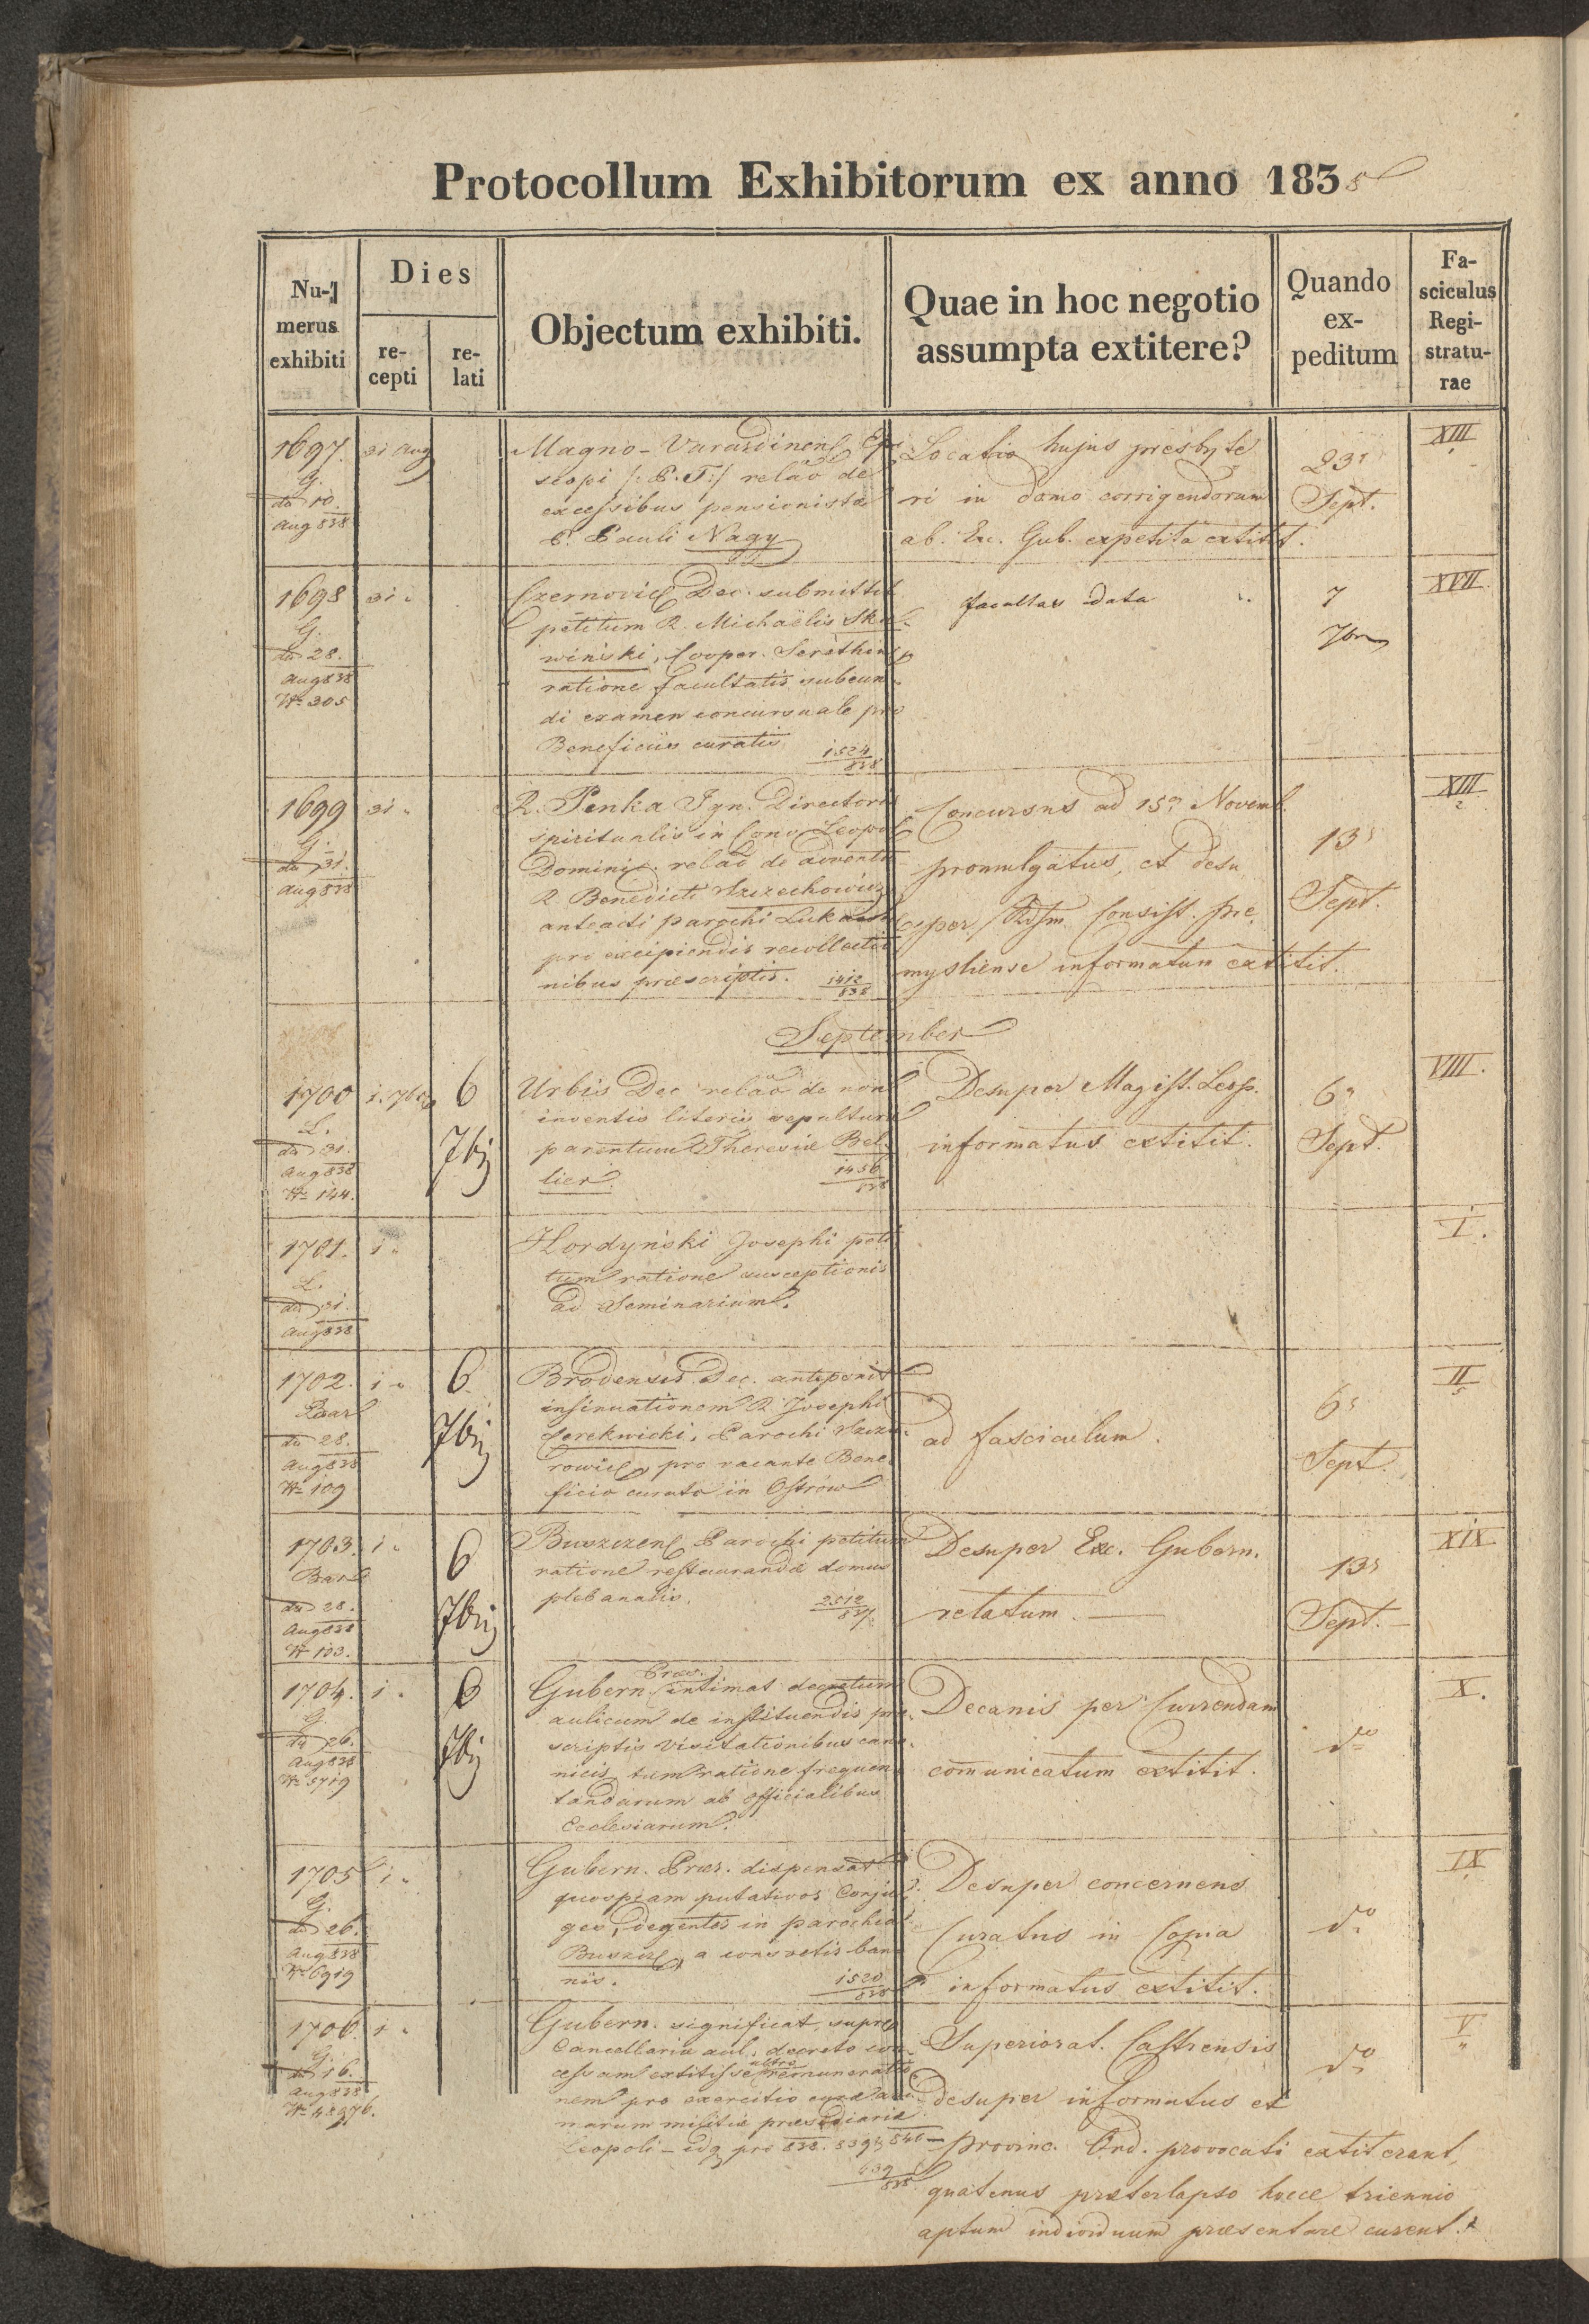 Protocollum Exhibitorum ex anno 1838
Numerus exhibiti
Dies
recepti
relati
Objectum exhibiti.
Quae in hoc negotio assumpta extitere?
Quando expeditum
Fasciculus Registraturae
1697.
G.
dto 10.
Aug 838
31 Aug
Magno-Varasdinens Epi
scopi /: P.T :/ relao de
excessibus pensionistae
P. Pauli Nagy
Locatio hujus presbyte
ri in domo corrigendorum
ab. Exc. Gub. expetita extitit.
23
Sept.
XIII
1698
G.
dto 28.
Aug 838
N 305
31
Czernovic Dec. submittit
petitum R. Michaëlis Sko
winski, Cooper. Serethin
ratione facultatis subeun
di examen concursuale pro
Beneficiis curatis
1524
838
facultas data
7
7br
XVII.
1699
G.
dto 31.
Aug 838
31
R. Penka Ign. Directoris
spiritualis in Conv. Leopol
Dominic. relao de adventu
R Benedicti Szczechowicz
anteacti parochi Lukaw
pro excipiendis recollectio
nibus praescriptis.
1412
838
Concursus ad 15 Novemb.
promulgatus, et desu
per Rdsm. Consist. Pre
mysliense informatum extitit.
13
Sept.
XIII
2
September
1700
L.
dto 31.
Aug 838
N 144.
1. 7br
6
7bris
Urbis Dec relao de non
inventis literis sepulturae
parentum Theresiae Bel
lier
1456
838
Desuper Magist. Leop.
informatus extitit.
6
Sept.
VIII.
1701.
L.
dto 31.
Aug 838
1
Hordyński Josephi peti
tum ratione susceptionis
ad Seminarium.
I.
1702.
dto 28.
Aug 838
N 109
1
6
7bris
Brodensis Dec. anteponit
insinuationem R Josephi
Cerekwicki, Parochi Szczu
rowic, pro vacante Bene
ficio curato in Ostrow
ad fasciculum.
6
Sept.
II
5
1703.
dto 28.
Aug 838
N 103.
1
6
7bris
Buszczens Parochi petitum
ratione restaurandae domus
plebanalis.
2512
837.
Desuper Exc. Gubern.
relatum. —
13
Sept. —
XIX
1704.
G.
dto 26.
Aug 838
N 5719
1
6
7bris
Gubern. Praes. intimat decretum
aulicum de instituendis prae
scriptis visitationibus cano
nicis, tum ratione frequen
tandarum ab officialibus
Ecclesiarum.
Decanis per Currendam
comunicatum extitit.
do
X.
1705
G.
dto 26.
Aug 838
N 6919
1
Gubern. Praes. dispensat
quospiam putativos Conju
ges, degentes in parochia
Buszcze, a consvetis ban
nis.
1520
838
Desuper concernens
Curatus in Copia
informatus extitit.
do
IX
1706.
G.
dto 16.
Aug 838
N 48976.
1
Gubern. significat, supre
Cancellaria aul. decreto con
cessam extitisse ultro remuneratio
nem pro exercitio curae ani
marum militiae praesidiariae
Leopoli - idq pro 838. 839 & 840 —
639
838
Superiorat. Castrensis
desuper informatus et
Provinc. Ord. provocati extiterunt,
quatenus praeterlapso hocce triennio
aptum individuum praesentare curent.
do
V